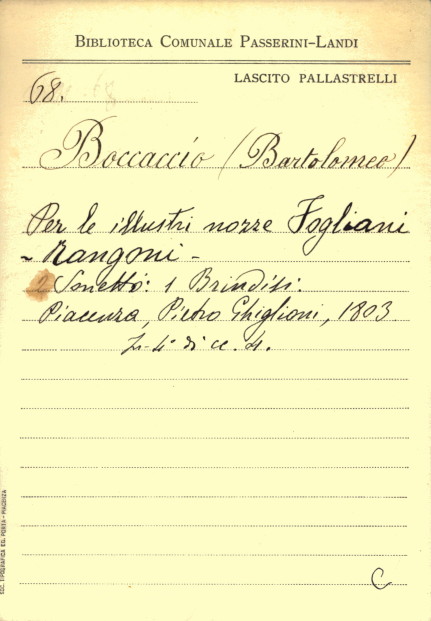 BIBLIOTECA COMUNALE PASSERINI-LANDI
LASCITO PALLASTRELLI
68.
Boccaccio (Bartolomeo)
Per le illustri nozze Fogliani
- Rangoni -
2 Sonetti: 1 Brindisi.
Piacenza, Pietro Ghiglioni, 1803
In-4° di cc. 4.
C
SOC. TIPOGRAFICA ED. PORTA - PIACENZA